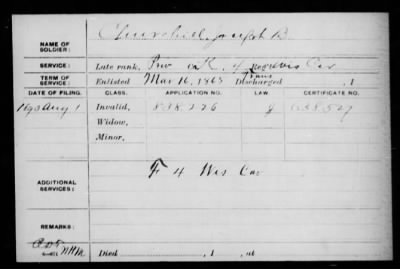 Churchill, Joseph B.
NAME OF SOLDIER:
SERVICE: Late rank, Priv Co K, 4 Reg't Wis Cav
TERM OF SERVICE: Enlisted Mar 16, 1865 Discharged , 1
DATE OF FILING. CLASS. APPLICATION NO. LAW CERTIFICATE NO.
1893 Aug 1 Invalid, 838
Widow,
Minor,
F 4 Wis Cav
ADDITIONAL SERVICES:
REMARKS:
Died , 1 , at